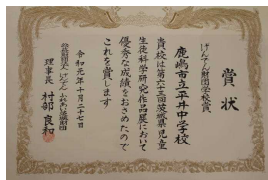 賞状
げんでん財団学校賞
鹿嶋市立平井中学校
貴校は第六十三回茨城県児童
生徒科学研究作品展において
優秀な成績をおさめたので
これを賞します
令和元年十月二十七日
公益財団法人げんでんふれあい茨城財団
理事長 村部良和